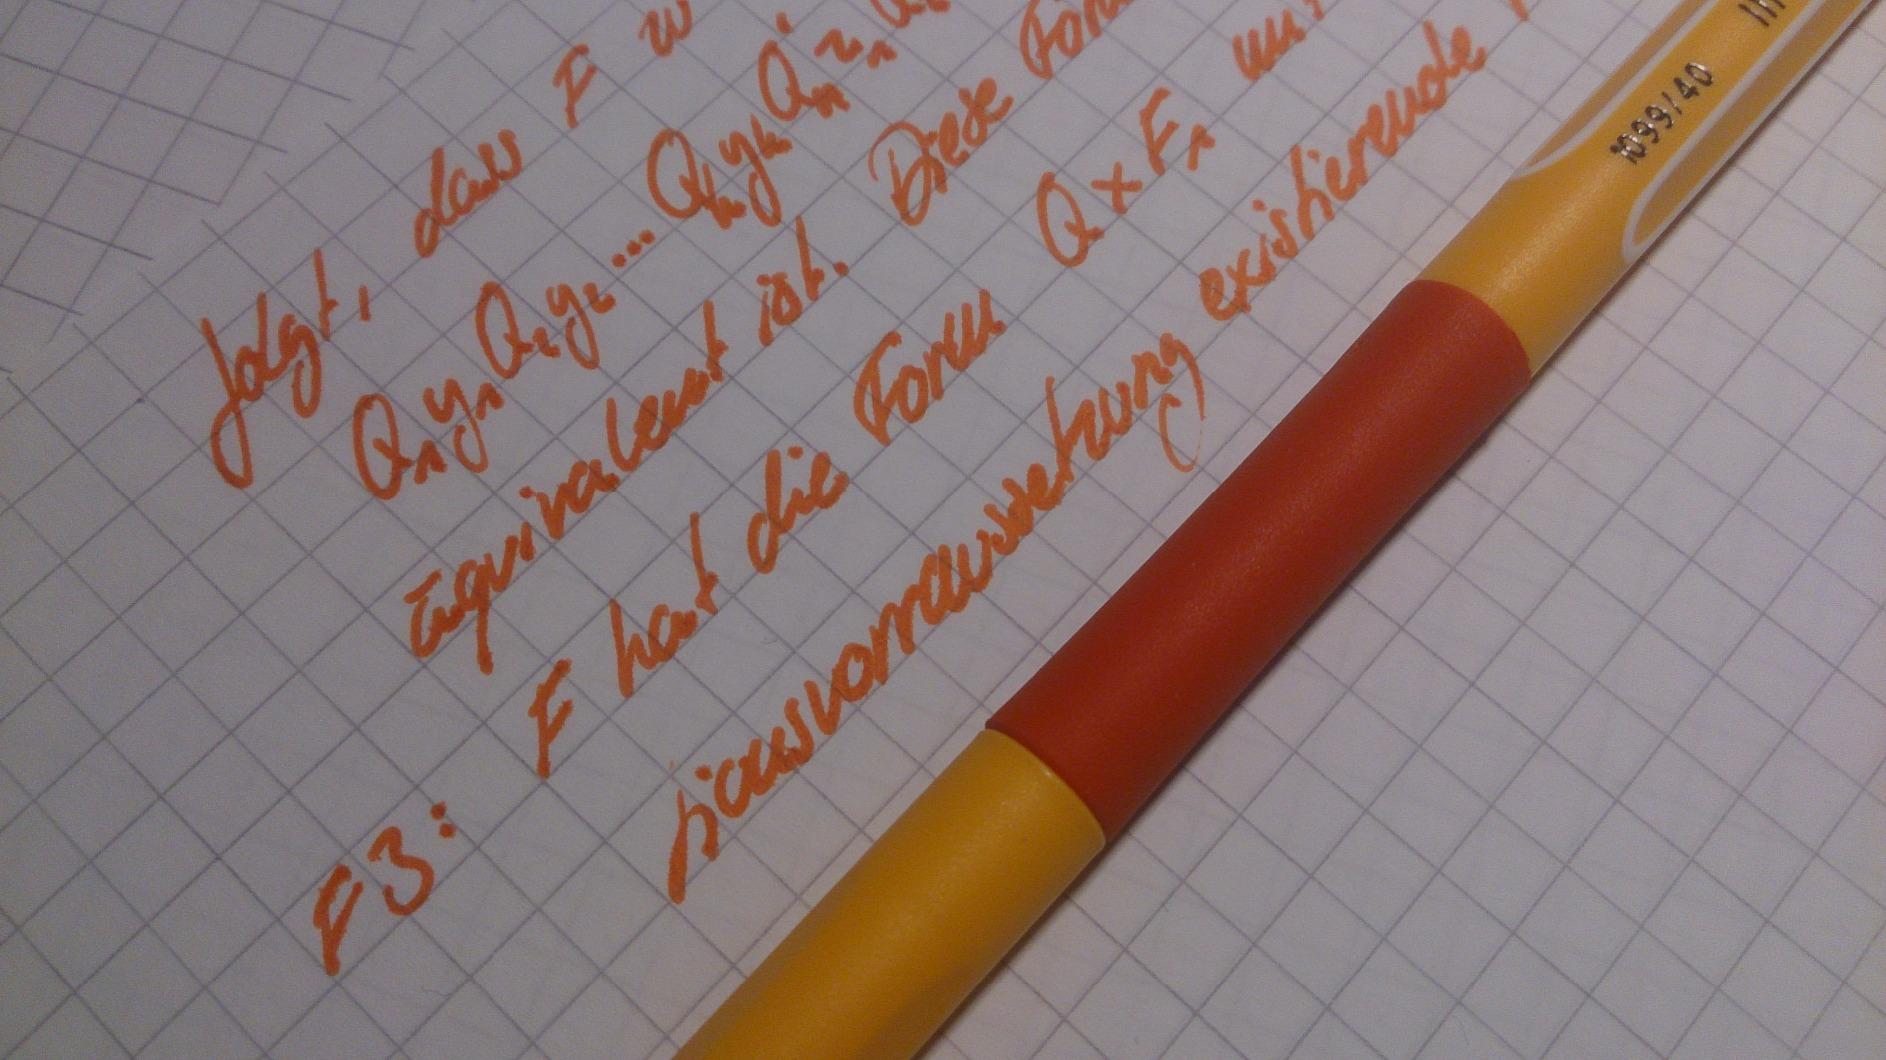 folgt, dass F
Q₁y₁Q₂y₂...Qₖyₖ
äquivalent ist. Diese
F3: F hat die Form Q x F₁
sausvorraussetzung existierende
1099/40